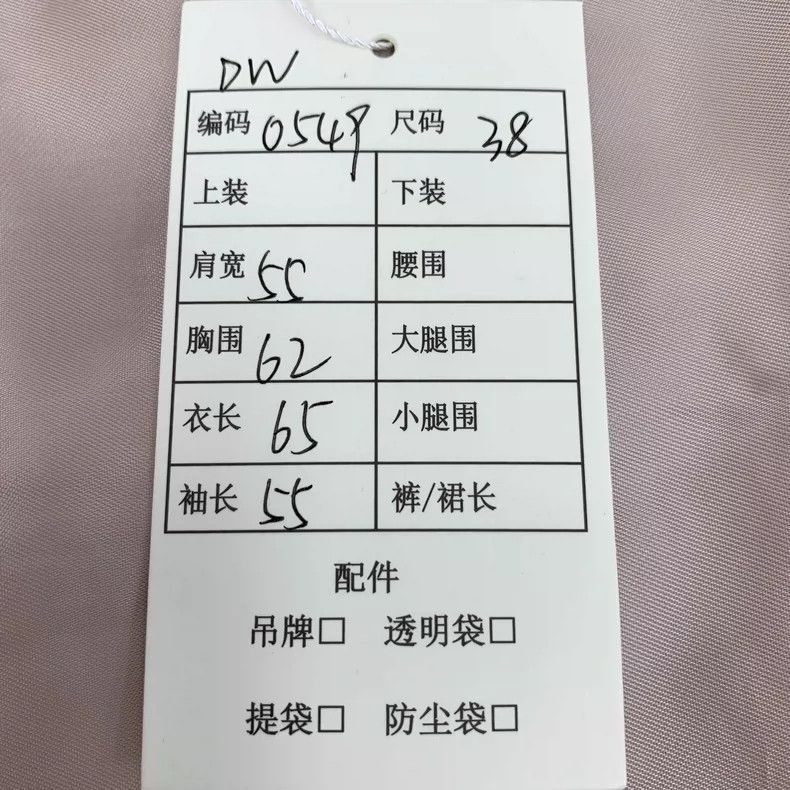 DW
编码 0549 尺码 38
上装 下装
肩宽 55 腰围
胸围 62 大腿围
衣长 65 小腿围
袖长 55 裤/裙长
配件
吊牌□ 透明袋□
提袋□ 防尘袋□